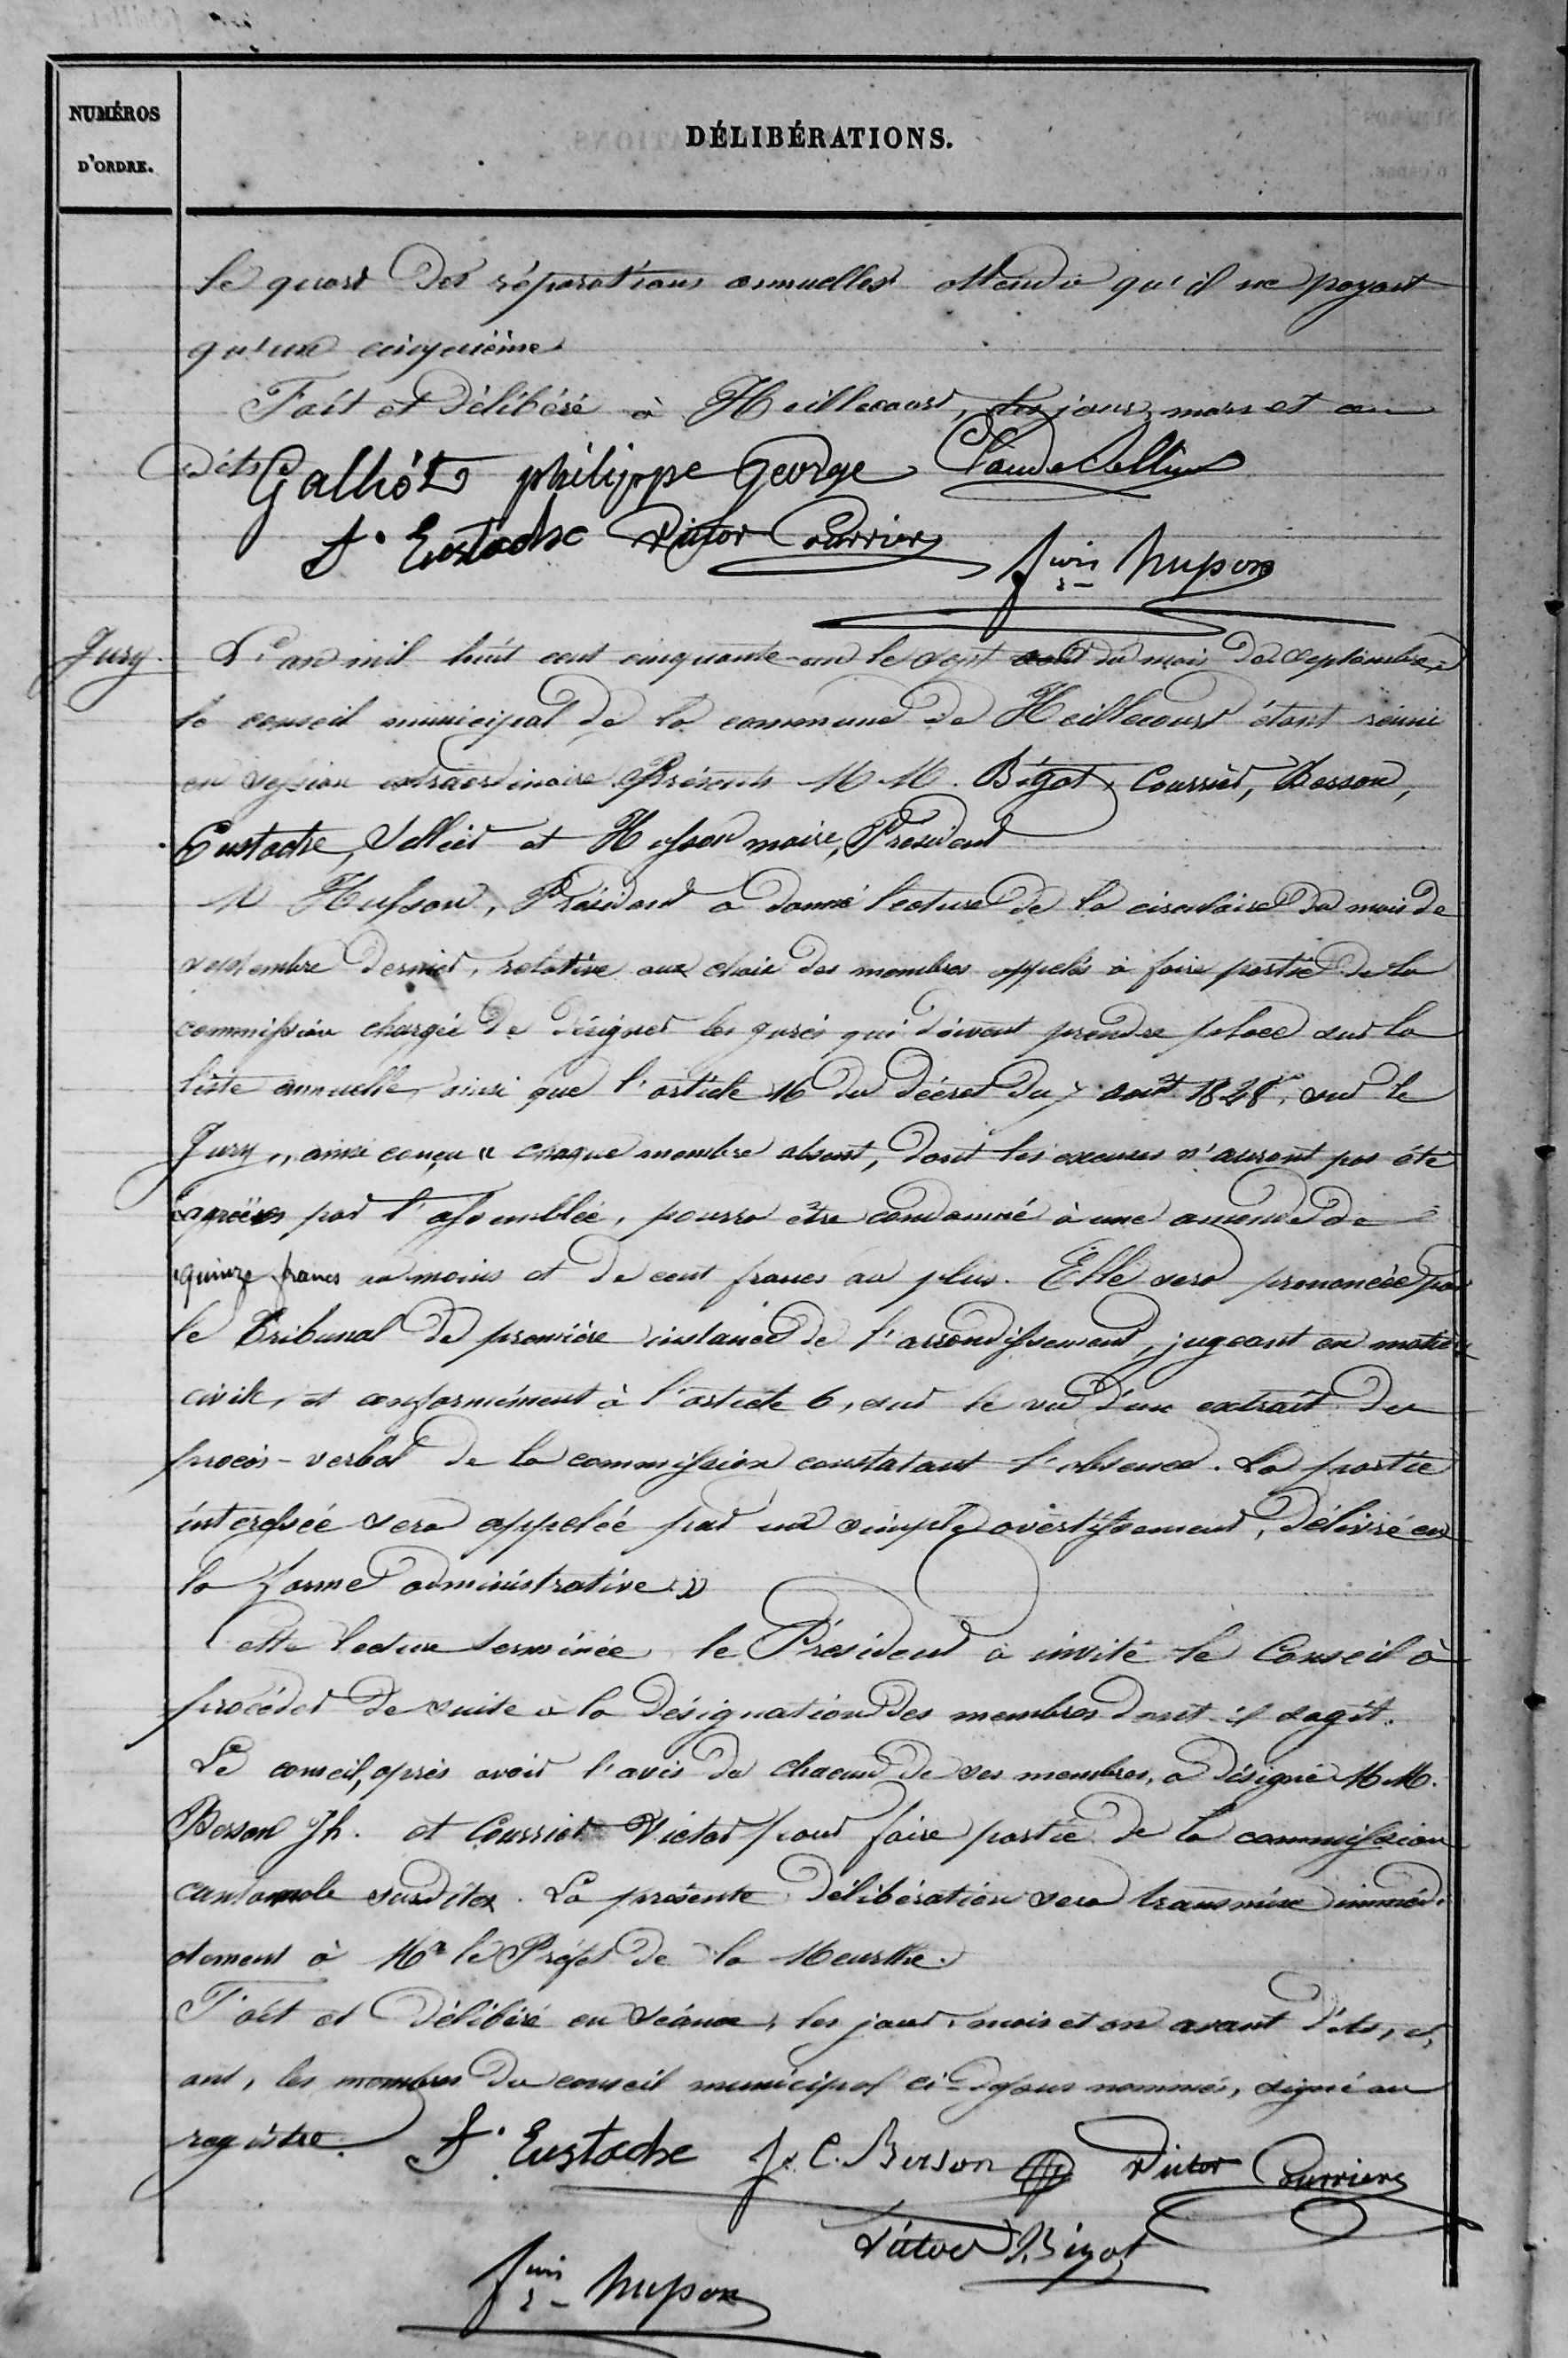 NUMÉROS
D'ORDRE.
DÉLIBÉRATIONS.
le quart des réparations annuelles attendu qu'il ne payait
qu'un cinquième
Fait et Délibéré à Heillecourt, les jour, mois et an
Dits
Galliót philippe George Claude Sellier
f. Eustache Victor Courrier
fois husson
Jury.
L'an mil huit cent cinquante-un le sept août du mois de Septembre,
le conseil municipal de la commune de Heillecourt étant réuni
en session extraordinaire Présents M M. Bigot, Courrier, Berson,
Eustache, Sellier et Husson maire, Président
M Husson, Président a donné lecture de la circulaire du mois de
septembre dernier, relative aux choix des membres appelés à faire partie de la
commission chargée de désigner les jurés qui doivent prendre place sur la
liste annuelle, ainsi que l'article 16 du décret du 7 août 1848, sur le
Jury, ainsi conçu « chaque membre absent, dont les excuses n'auront pas été
agréées par l'assemblée, pourra être condamné à une amende de
quinze francs au moins et de cent francs au plus. Elle sera prononcée par
le Tribunal de première instance de l'arrondissement, jugeant en matière
civile, et conformément à l'article 6, sur le vu d'un extrait du
procès-verbal de la commission constatant l'absence. La partie
intéressée sera appelée par un simple avertissement, délivré en
la forme administrative. »
Cette lecture terminée, le Président a invité le Conseil à
procéder de suite à la désignation des membres dont il sagit.
Le conseil, après avoir l'avis de chacun de ses membres, a désigné M M.
Berson Jh. et Courrier Victor pour faire partie de la commission
cantonale susdites. La présente délibération sera transmise immédi
atement à Mr le Préfet de la Meurthe.
Fait et Délibéré en séance, les jour, mois et an avant dits, et,
ont, les membres du conseil municipal ci-dessus nommés, signé au
registre.
f. Eustache J. C. Berson Victor Courrier
Victor Bigot
fois husson